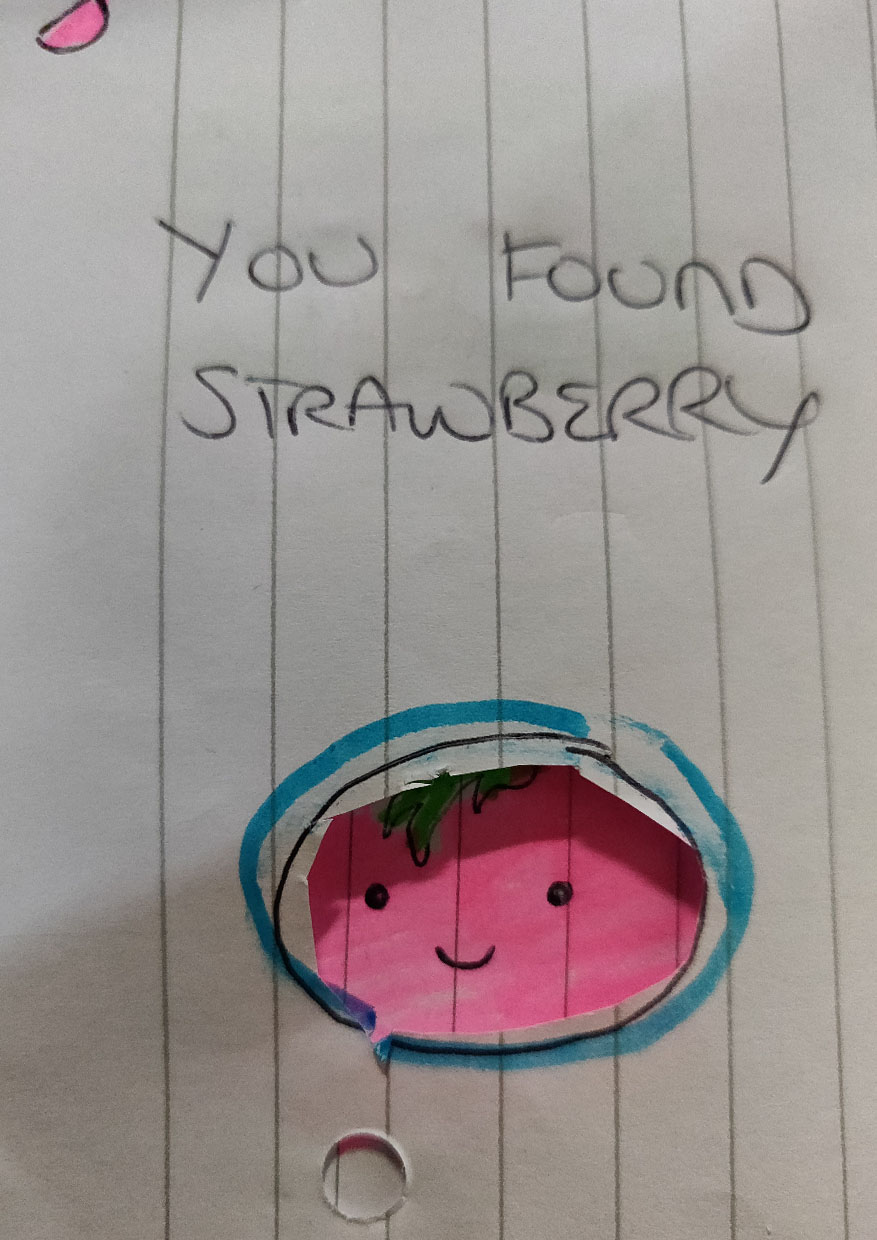 YOU FOUND
STRAWBERRY